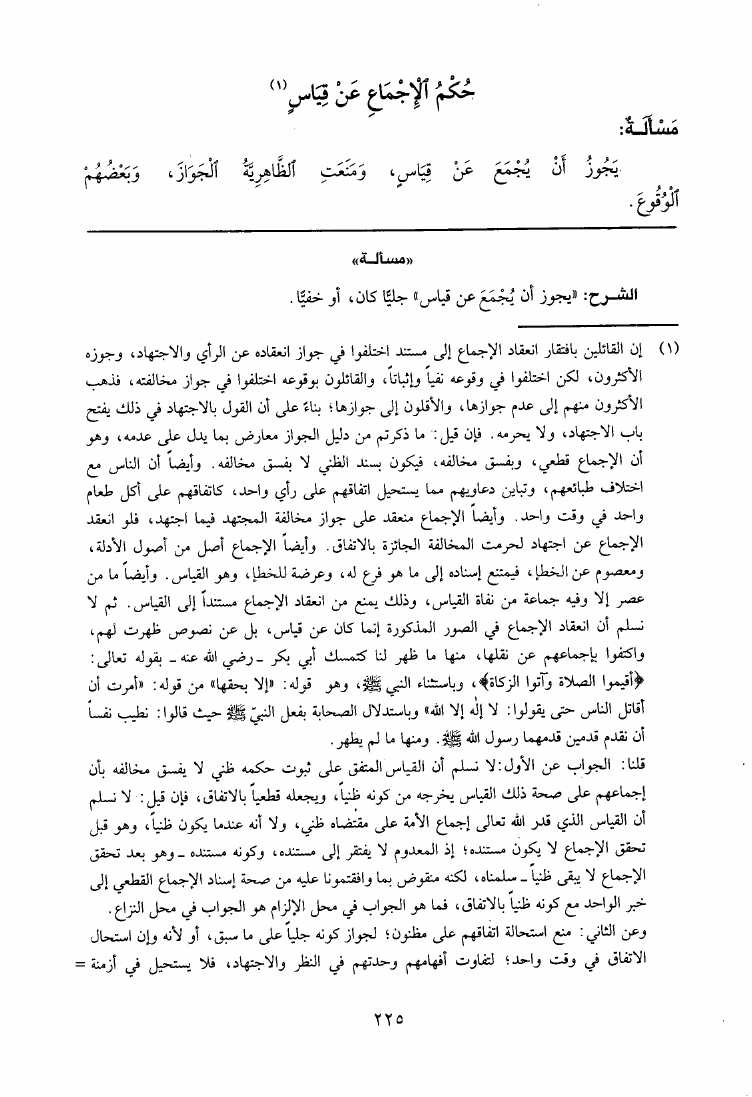 حُكْمُ ٱلْإِجْمَاعِ عَنْ قِيَاسٍ(١)
مَسْأَلَـةٌ:
يَجُوزُ أَنْ يُجْمَعَ عَنْ قِيَاسٍ، وَمَنَعَتِ ٱلظَّاهِرِيَّةُ ٱلْجَوَازَ، وَبَعْضُهُمْ
ٱلْوُقُوعَ.
«مسألـة»
الشـرح: «يجوز أن يُجْمَعَ عن قياس» جليًّا كان، أو خفيًّا.
(١) إن القائلين بافتقار انعقاد الإجماع إلى مستند اختلفوا في جواز انعقاده عن الرأي والاجتهاد، وجوزه
الأكثرون، لكن اختلفوا في وقوعه نفياً وإثباتاً، والقائلون بوقوعه اختلفوا في جواز مخالفته، فذهب
الأكثرون منهم إلى عدم جوازها، والأقلون إلى جوازها؛ بناءً على أن القول بالاجتهاد في ذلك يفتح
باب الاجتهاد، ولا يحرمه. فإن قيل: ما ذكرتم من دليل الجواز معارض بما يدل على عدمه، وهو
أن الإجماع قطعي، وبفسق مخالفه، فيكون بسند الظني لا بفسق مخالفه. وأيضاً أن الناس مع
اختلاف طبائعهم، وتباين دعاويهم مما يستحيل اتفاقهم على رأي واحد، كاتفاقهم على أكل طعام
واحد في وقت واحد. وأيضاً الإجماع منعقد على جواز مخالفة المجتهد فيما اجتهد، فلو انعقد
الإجماع عن اجتهاد لحرمت المخالفة الجائزة بالاتفاق. وأيضاً الإجماع أصل من أصول الأدلة،
ومعصوم عن الخطإ، فيمتنع إسناده إلى ما هو فرع له، وعرضة للخطإ، وهو القياس. وأيضاً ما من
عصر إلا وفيه جماعة من نفاة القياس، وذلك يمنع من انعقاد الإجماع مستنداً إلى القياس. ثم لا
نسلم أن انعقاد الإجماع في الصور المذكورة إنما كان عن قياس، بل عن نصوص ظهرت لهم،
واكتفوا بإجماعهم عن نقلها، منها ما ظهر لنا كتمسك أبي بكر ـ رضي الله عنه ـ بقوله تعالى:
﴿أقيموا الصلاة وآتوا الزكاة﴾، وباستثناء النبي ﷺ، وهو قوله: «إلا بحقها» من قوله: «أمرت أن
أقاتل الناس حتى يقولوا: لا إلٰه إلا الله» وباستدلال الصحابة بفعل النبيّ ﷺ حيث قالوا: نطيب نفساً
أن نقدم قدمين قدمهما رسول الله ﷺ. ومنها ما لم يظهر.
قلنا: الجواب عن الأول: لا نسلم أن القياس المتفق على ثبوت حكمه ظني لا يفسق مخالفه بأن
إجماعهم على صحة ذلك القياس يخرجه من كونه ظنياً، ويجعله قطعياً بالاتفاق، فإن قيل: لا نسلم
أن القياس الذي قدر الله تعالى إجماع الأمة على مقتضاه ظني، ولا أنه عندما يكون ظنياً، وهو قبل
تحقق الإجماع لا يكون مستنده؛ إذ المعدوم لا يفتقر إلى مستنده، وكونه مستنده ـ وهو بعد تحقق
الإجماع لا يبقى ظنياً ـ سلمناه، لكنه منقوض بما وافقتمونا عليه من صحة إسناد الإجماع القطعي إلى
خبر الواحد مع كونه ظنياً بالاتفاق، فما هو الجواب في محل الإلزام هو الجواب في محل النزاع.
وعن الثاني: منع استحالة اتفاقهم على مظنون؛ لجواز كونه جلياً على ما سبق، أو لأنه وإن استحال
الاتفاق في وقت واحد؛ لتفاوت أفهامهم وحدتهم في النظر والاجتهاد، فلا يستحيل في أزمنة =
٢٢٥